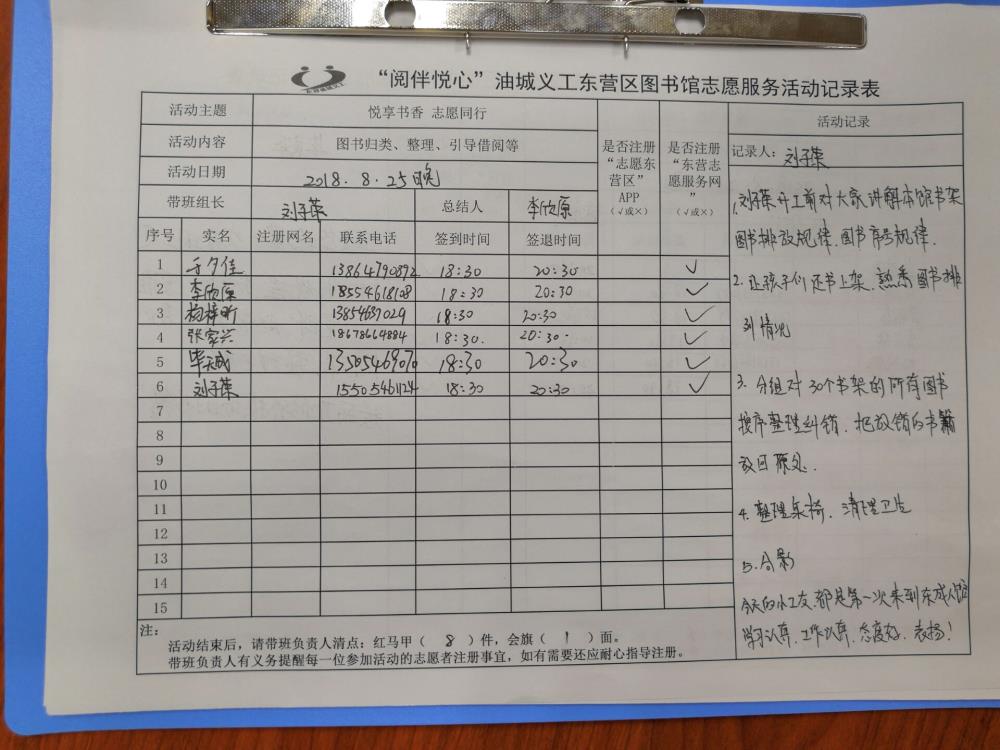 “阅伴悦心”油城义工东营区图书馆志愿服务活动记录表
活动主题 悦享书香 志愿同行
活动内容 图书归类、整理、引导借阅等
活动日期 2018.8.25晚
带班组长 刘子荣 总结人 李欣原
序号 实名 注册网名 联系电话 签到时间 签退时间
是否注册
“志愿东
营区”
APP
（√或×）
是否注册
“东营志
愿服务网
”
（√或×）
1 于夕佳 13864790892 18:30 20:30 √
2 李欣原 18554618108 18:30 20:30 √
3 杨梓昕 13854637029 18:30 20:30 √
4 张家兴 18678664884 18:30. 20:30. √
5 毕天成 13505469070 18:30 20:30 √
6 刘子荣 15505461124 18:30 20:30 √
7
8
9
10
11
12
13
14
15
注：
活动结束后，请带班负责人清点：红马甲（ 8 ）件，会旗（ 1 ）面。
带班负责人有义务提醒每一位参加活动的志愿者注册事宜，如有需要还应耐心指导注册。
活动记录
记录人：刘子荣
1.刘子荣开工前对大家讲解本馆书架
图书排放规律．图书序号规律．
2.让孩子们还书上架．熟悉图书排
列情况
3.分组对30个书架的所有图书
按序整理纠错．把放错的书籍
放回原处．
4.整理桌椅．清理卫生
5.合影
今天的小工友．都是第一次来到东成人馆
学习认真．工作认真．态度好．表扬！